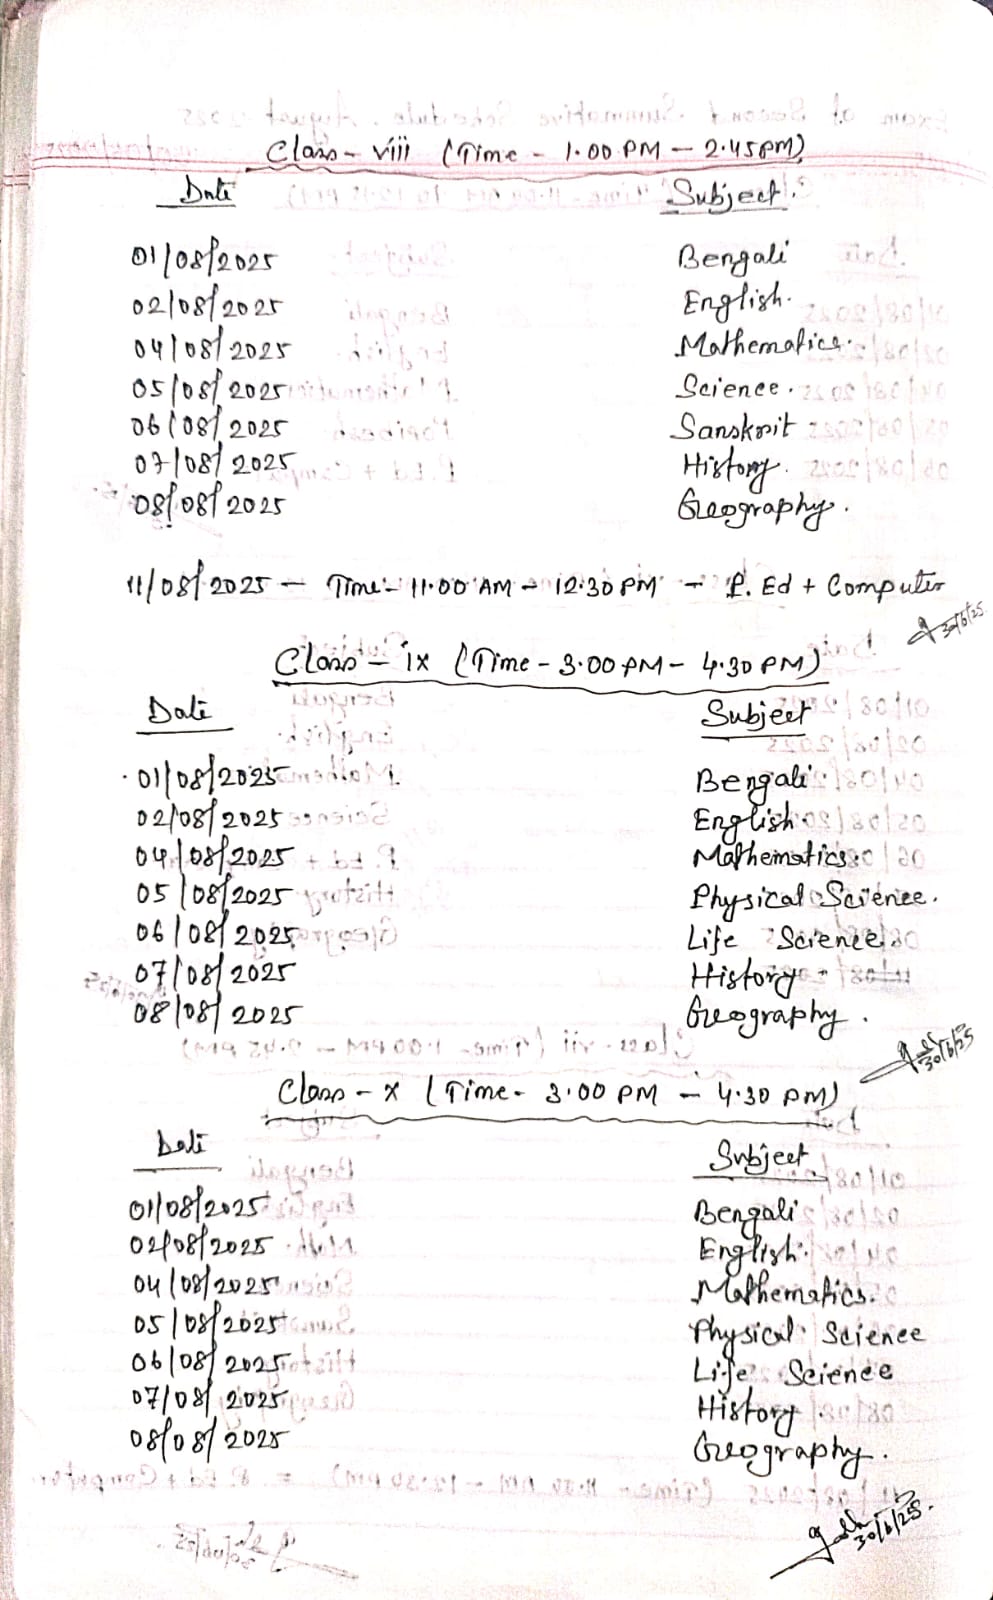 Class - viii (Time - 1.00 PM - 2.45 PM)
Date Subject.
01/08/2025 Bengali
02/08/2025 English.
04/08/2025 Mathematics.
05/08/2025 Science.
06/08/2025 Sanskrit
07/08/2025 History.
08/08/2025 Geography.
11/08/2025 - Time - 11.00 AM - 12.30 PM - P. Ed + Computer
30/6/25
Class - ix (Time - 3.00 PM - 4.30 PM)
Date Subject
01/08/2025 Bengali
02/08/2025 English
04/08/2025 Mathematics
05/08/2025 Physical Science.
06/08/2025 Life Science
07/08/2025 History
08/08/2025 Geography.
30/6/25
Class - X (Time - 3.00 PM - 4.30 PM)
Date Subject
01/08/2025 Bengali
02/08/2025 English.
04/08/2025 Mathematics.
05/08/2025 Physical Science
06/08/2025 Life Science
07/08/2025 History
08/08/2025 Geography.
30/6/25.